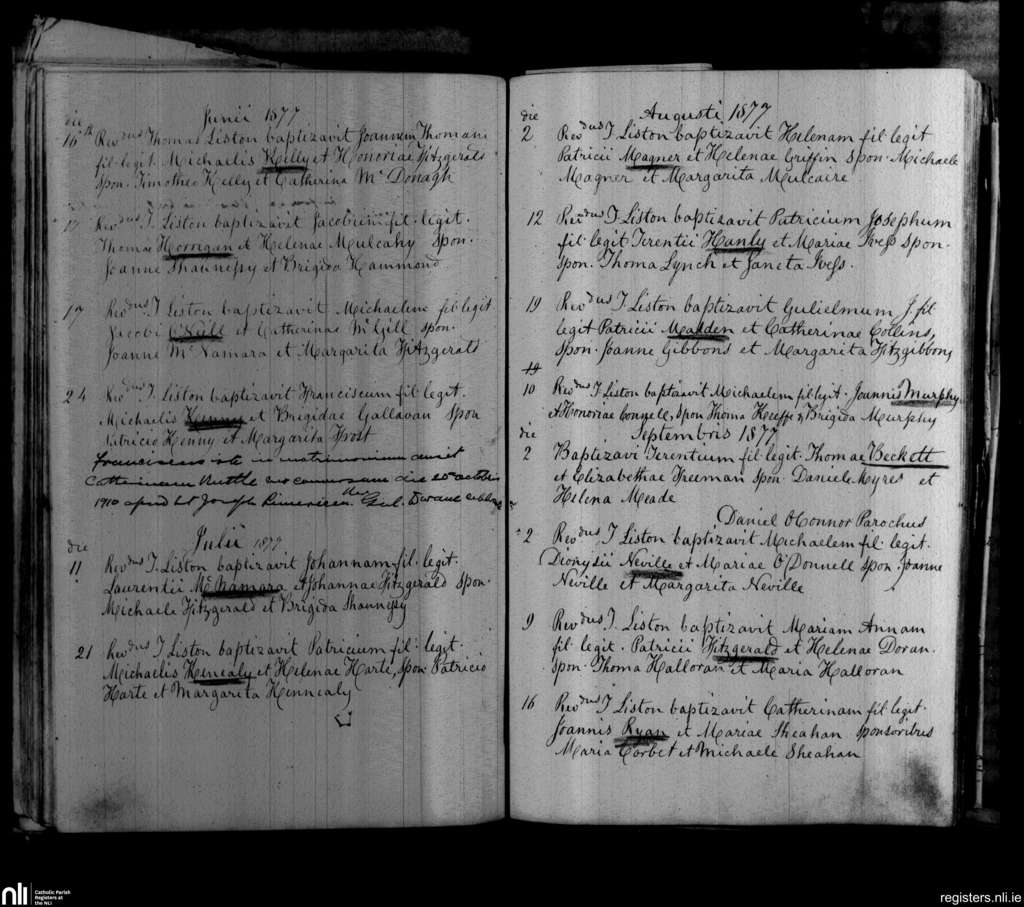 Junii 1877
die
16th Revdus Thomas Liston baptizavit Joannem Thomam
fil. legit. Michaelis Kelly et Honoriae Fitzgerald
spon. Timotheo Kelly et Catherina Mc Donagh
17 Revdus T Liston baptizavit Jacobum fil. legit.
Thomae Horrigan et Helenae Mulcahy spon.
Joanne Shaunessy et Brigida Hammond
17 Revdus T Liston baptizavit Michaelem fil legit
Jacobi et Catherinae McGill spon.
Joanne McNamara et Margarita Fitzgerald
24 Revdus T. Liston baptizavit Franciscum fil. legit.
Michaelis Kenny et Brigidae Gallavan spon
Patricio Kenny et Margarita Frost
Franciscus iste in matrimonium duxit
die 25 octobris
1910 apud St Joseph Limerick
Julii 1877
die
11 Revdus T. Liston baptizavit Johannam fil. legit.
Laurentii McNamara et Johannae Fitzgerald spon.
Michaele Fitzgerald et Brigida Shaunessy
21 Revdus T Liston baptizavit Patricium fil. legit.
Michaelis Kenealy et Helenae Harte, spon. Patricio
Harte et Margarita Kennealy
Augusti 1877
die
2 Revdus T. Liston baptizavit Helenam fil legit
Patricii Magner et Helenae Griffin spon. Michaele
Magner et Margarita Mulcaire
12 Revdus T Liston baptizavit Patricium Josephum
fil. legit Terentii Hanly et Mariae Ivess spon.
spon. Thoma Lynch et Janeta Ivess.
19 Revdus T Liston baptizavit Gulielmum J fil
legit Patricii Madden et Catherinae Collins,
spon. Joanne Gibbons et Margarita Fitzgibbons
19
10 Revdus T Liston baptizavit Michaelem fil legit. Joannis Murphy
et Honoriae spon Thoma Keeffe & Brigida Murphy
die Septembris 1877
2 Baptizavi Terentium fil. legit. Thomae Beckett
et Elizabethae Freeman spon. Daniele Ayres et
Helena Meade
Daniel O'Connor Parochus
2 Revdus T Liston baptizavit Michaelem fil. legit.
Dionysii Neville et Mariae O'Donnell spon. Joanne
Neville et Margarita Neville
9 Revdus T. Liston baptizavit Mariam Annam
fil. legit. Patricii Fitzgerald et Helenae Doran.
spon. Thoma Halloran et Maria Halloran
16 Revdus T Liston baptizavit Catherinam fil legit.
Joannis Ryan et Mariae Sheahan sponsoribus
Maria Corbet et Michaele Sheahan
nli Catholic Parish
Registers at
the NLI
registers.nli.ie